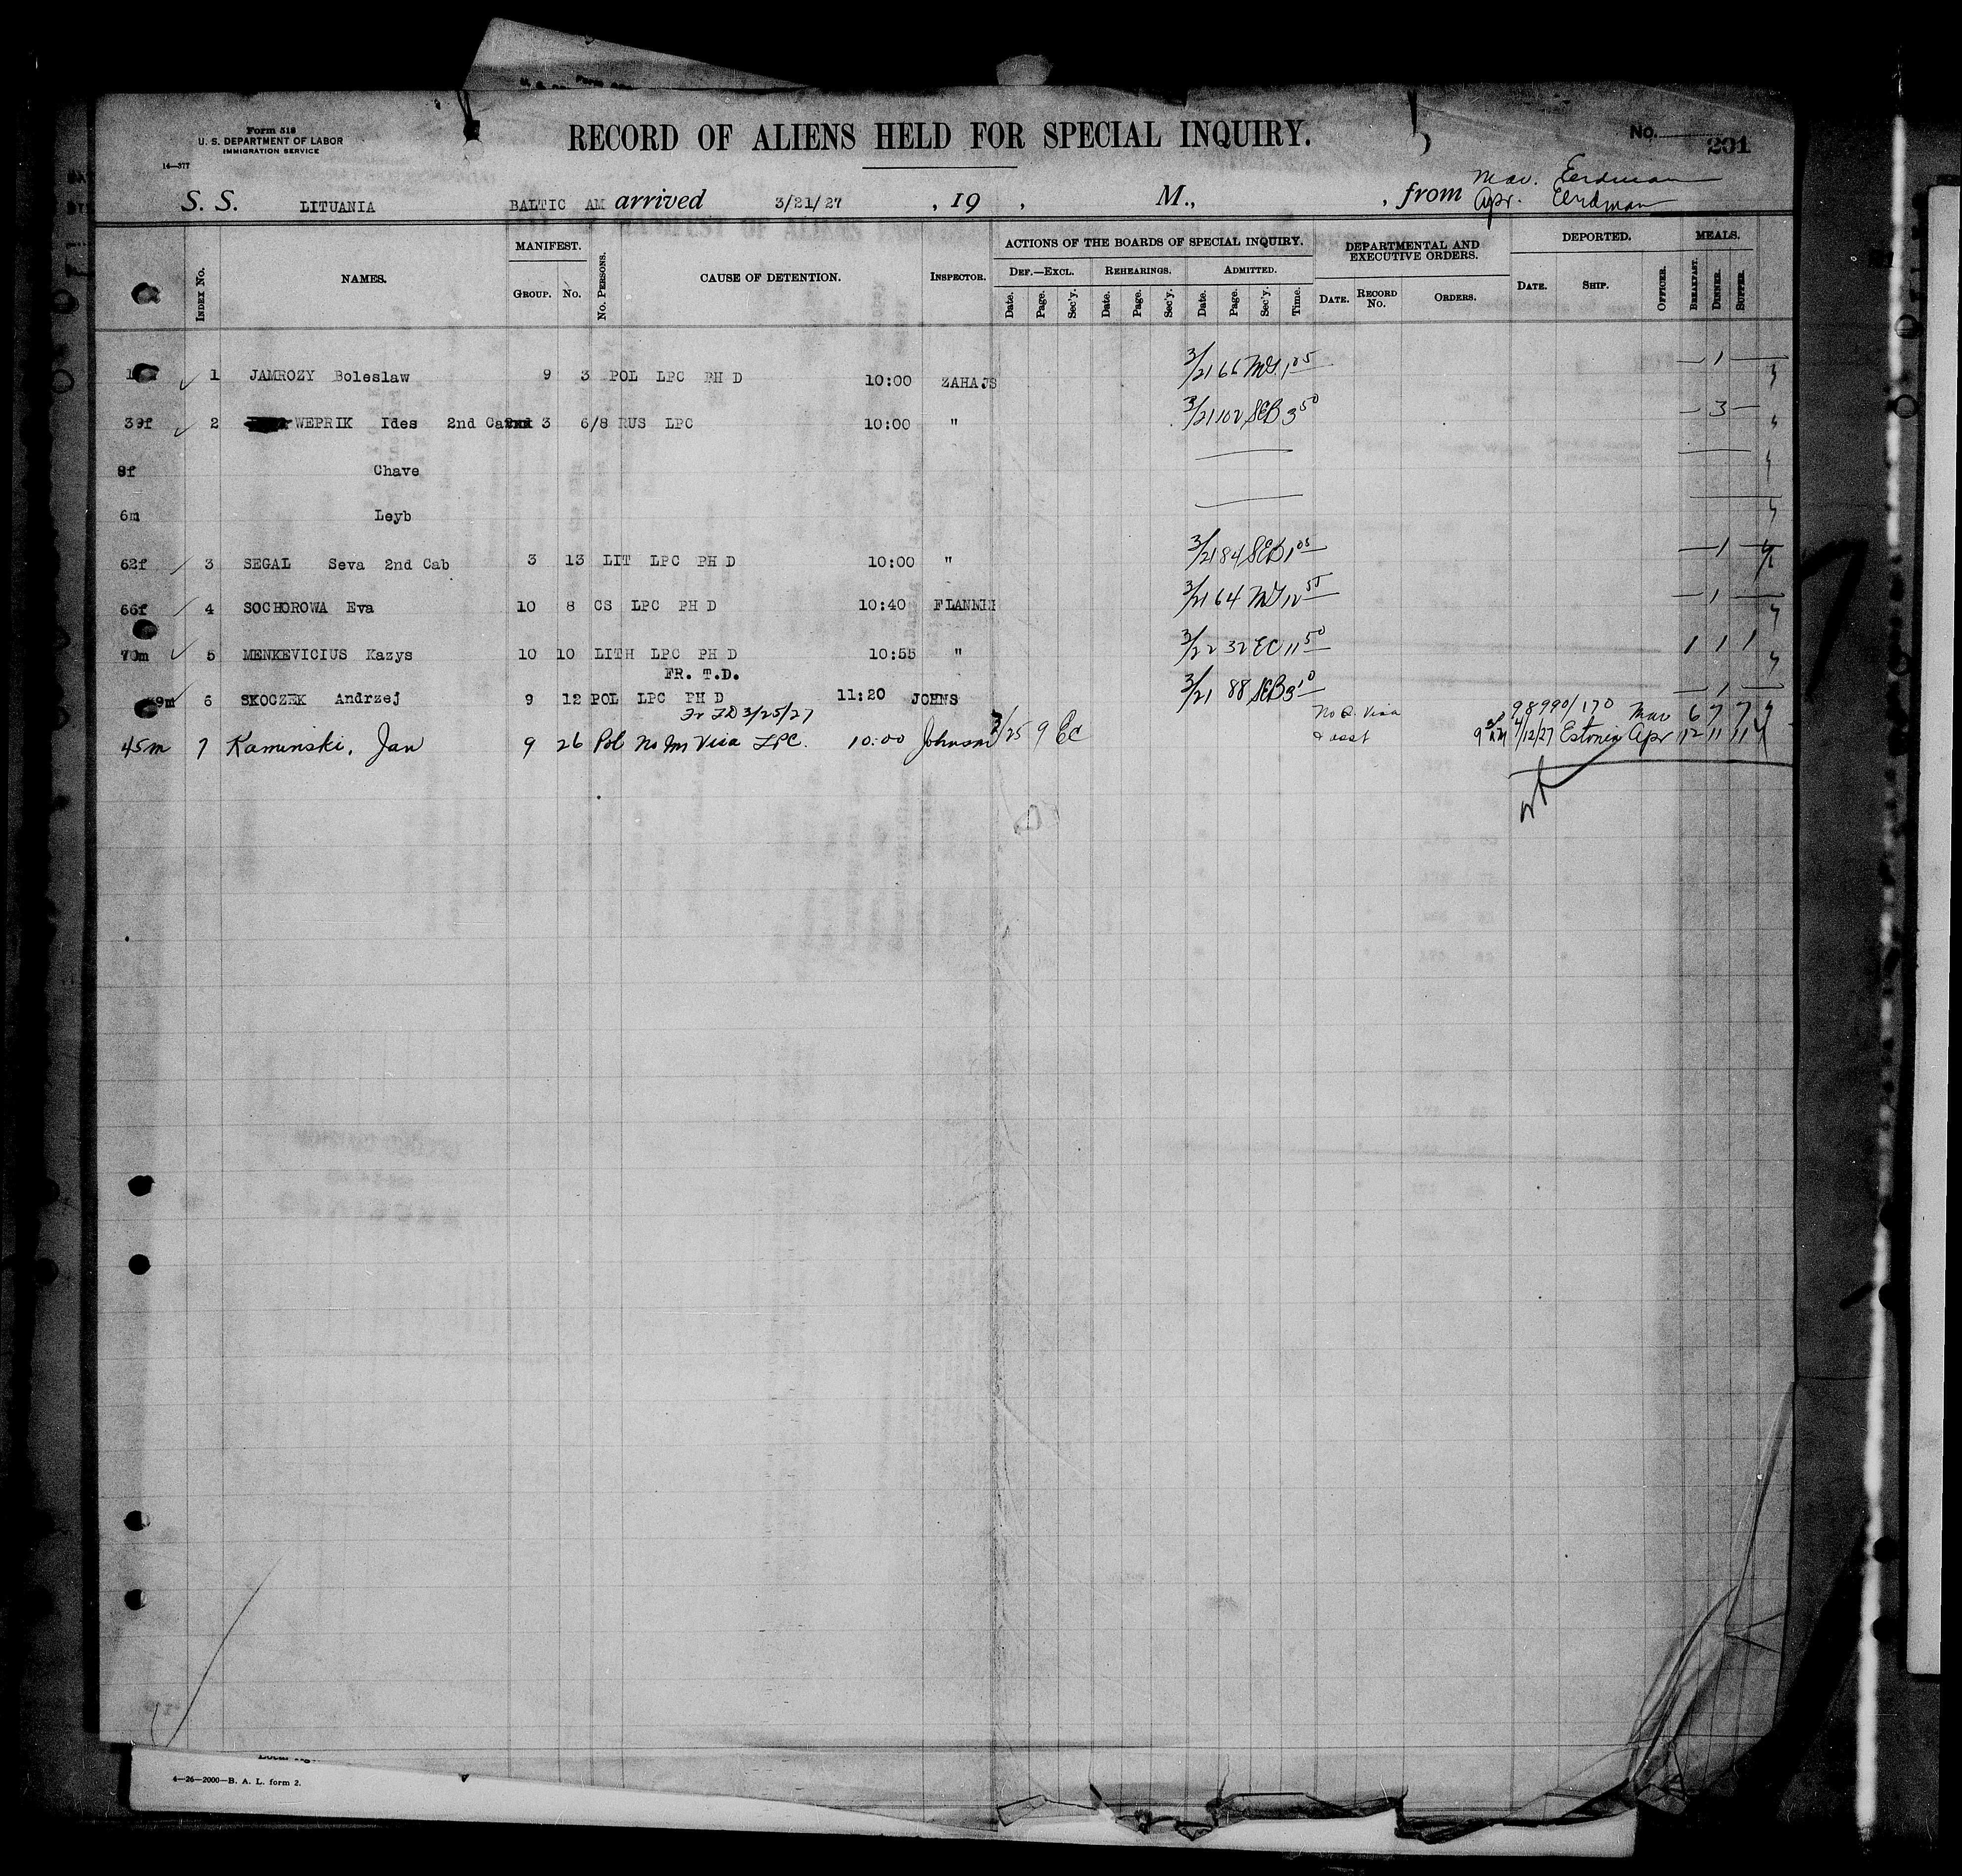 Form 518
U. S. DEPARTMENT OF LABOR
IMMIGRATION SERVICE
14—377
RECORD OF ALIENS HELD FOR SPECIAL INQUIRY.
No. 201
S. S. LITUANIA BALTIC AM arrived 3/21/27 , 19 , M., , from Mar. Eerdman
Apr. Eerdman
INDEX NO. NAMES. MANIFEST. GROUP. NO. NO. PERSONS. CAUSE OF DETENTION. INSPECTOR. ACTIONS OF THE BOARDS OF SPECIAL INQUIRY. DEPARTMENTAL AND EXECUTIVE ORDERS. DEPORTED. MEALS.
DEF.—EXCL. REHEARINGS. ADMITTED.
Date. Page. Sec'y. Date. Page. Sec'y. Date. Page. Sec'y. Time. DATE. RECORD NO. ORDERS. DATE. SHIP. OFFICER. BREAKFAST. DINNER. SUPPER.
1 JAMROZY Boleslaw 9 3 POL LPC PH D 10:00 ZAHAJS 3/21 66 MG 1 05 — 1 —
39f 2 WEPRIK Ides 2nd Cab 3 6/8 RUS LPC 10:00 " 3/21 102 SEB 3 50 — 3 —
8f Chave
6m Leyb
62f 3 SEGAL Seva 2nd Cab 3 13 LIT LPC PH D 10:00 " 3/21 84 SEB 1 05 — 1 —
66f 4 SOCHOROWA Eva 10 8 CS LPC PH D 10:40 FLANNEI 3/21 64 MG 12 55 — 1 —
70m 5 MENKEVICIUS Kazys 10 10 LITH LPC PH D 10:55 " 3/22 32 EC 11 50 1 1 1
FR. T.D.
39m 6 SKOCZEK Andrzej 9 12 POL LPC PH D 11:20 JOHNS 3/21 88 SEB 3 10 — 1 —
Fr TD 3/25/27 No Q. Visa 98990/170 Mar 6 7 7
45m 7 Kaminski, Jan 9 26 Pol No Im Visa LPC. 10:00 Johnson 3/25 9 EC & asst 4/12/27 Estonia Apr 12 11 11
4—26—2000—B. A. L. form 2.